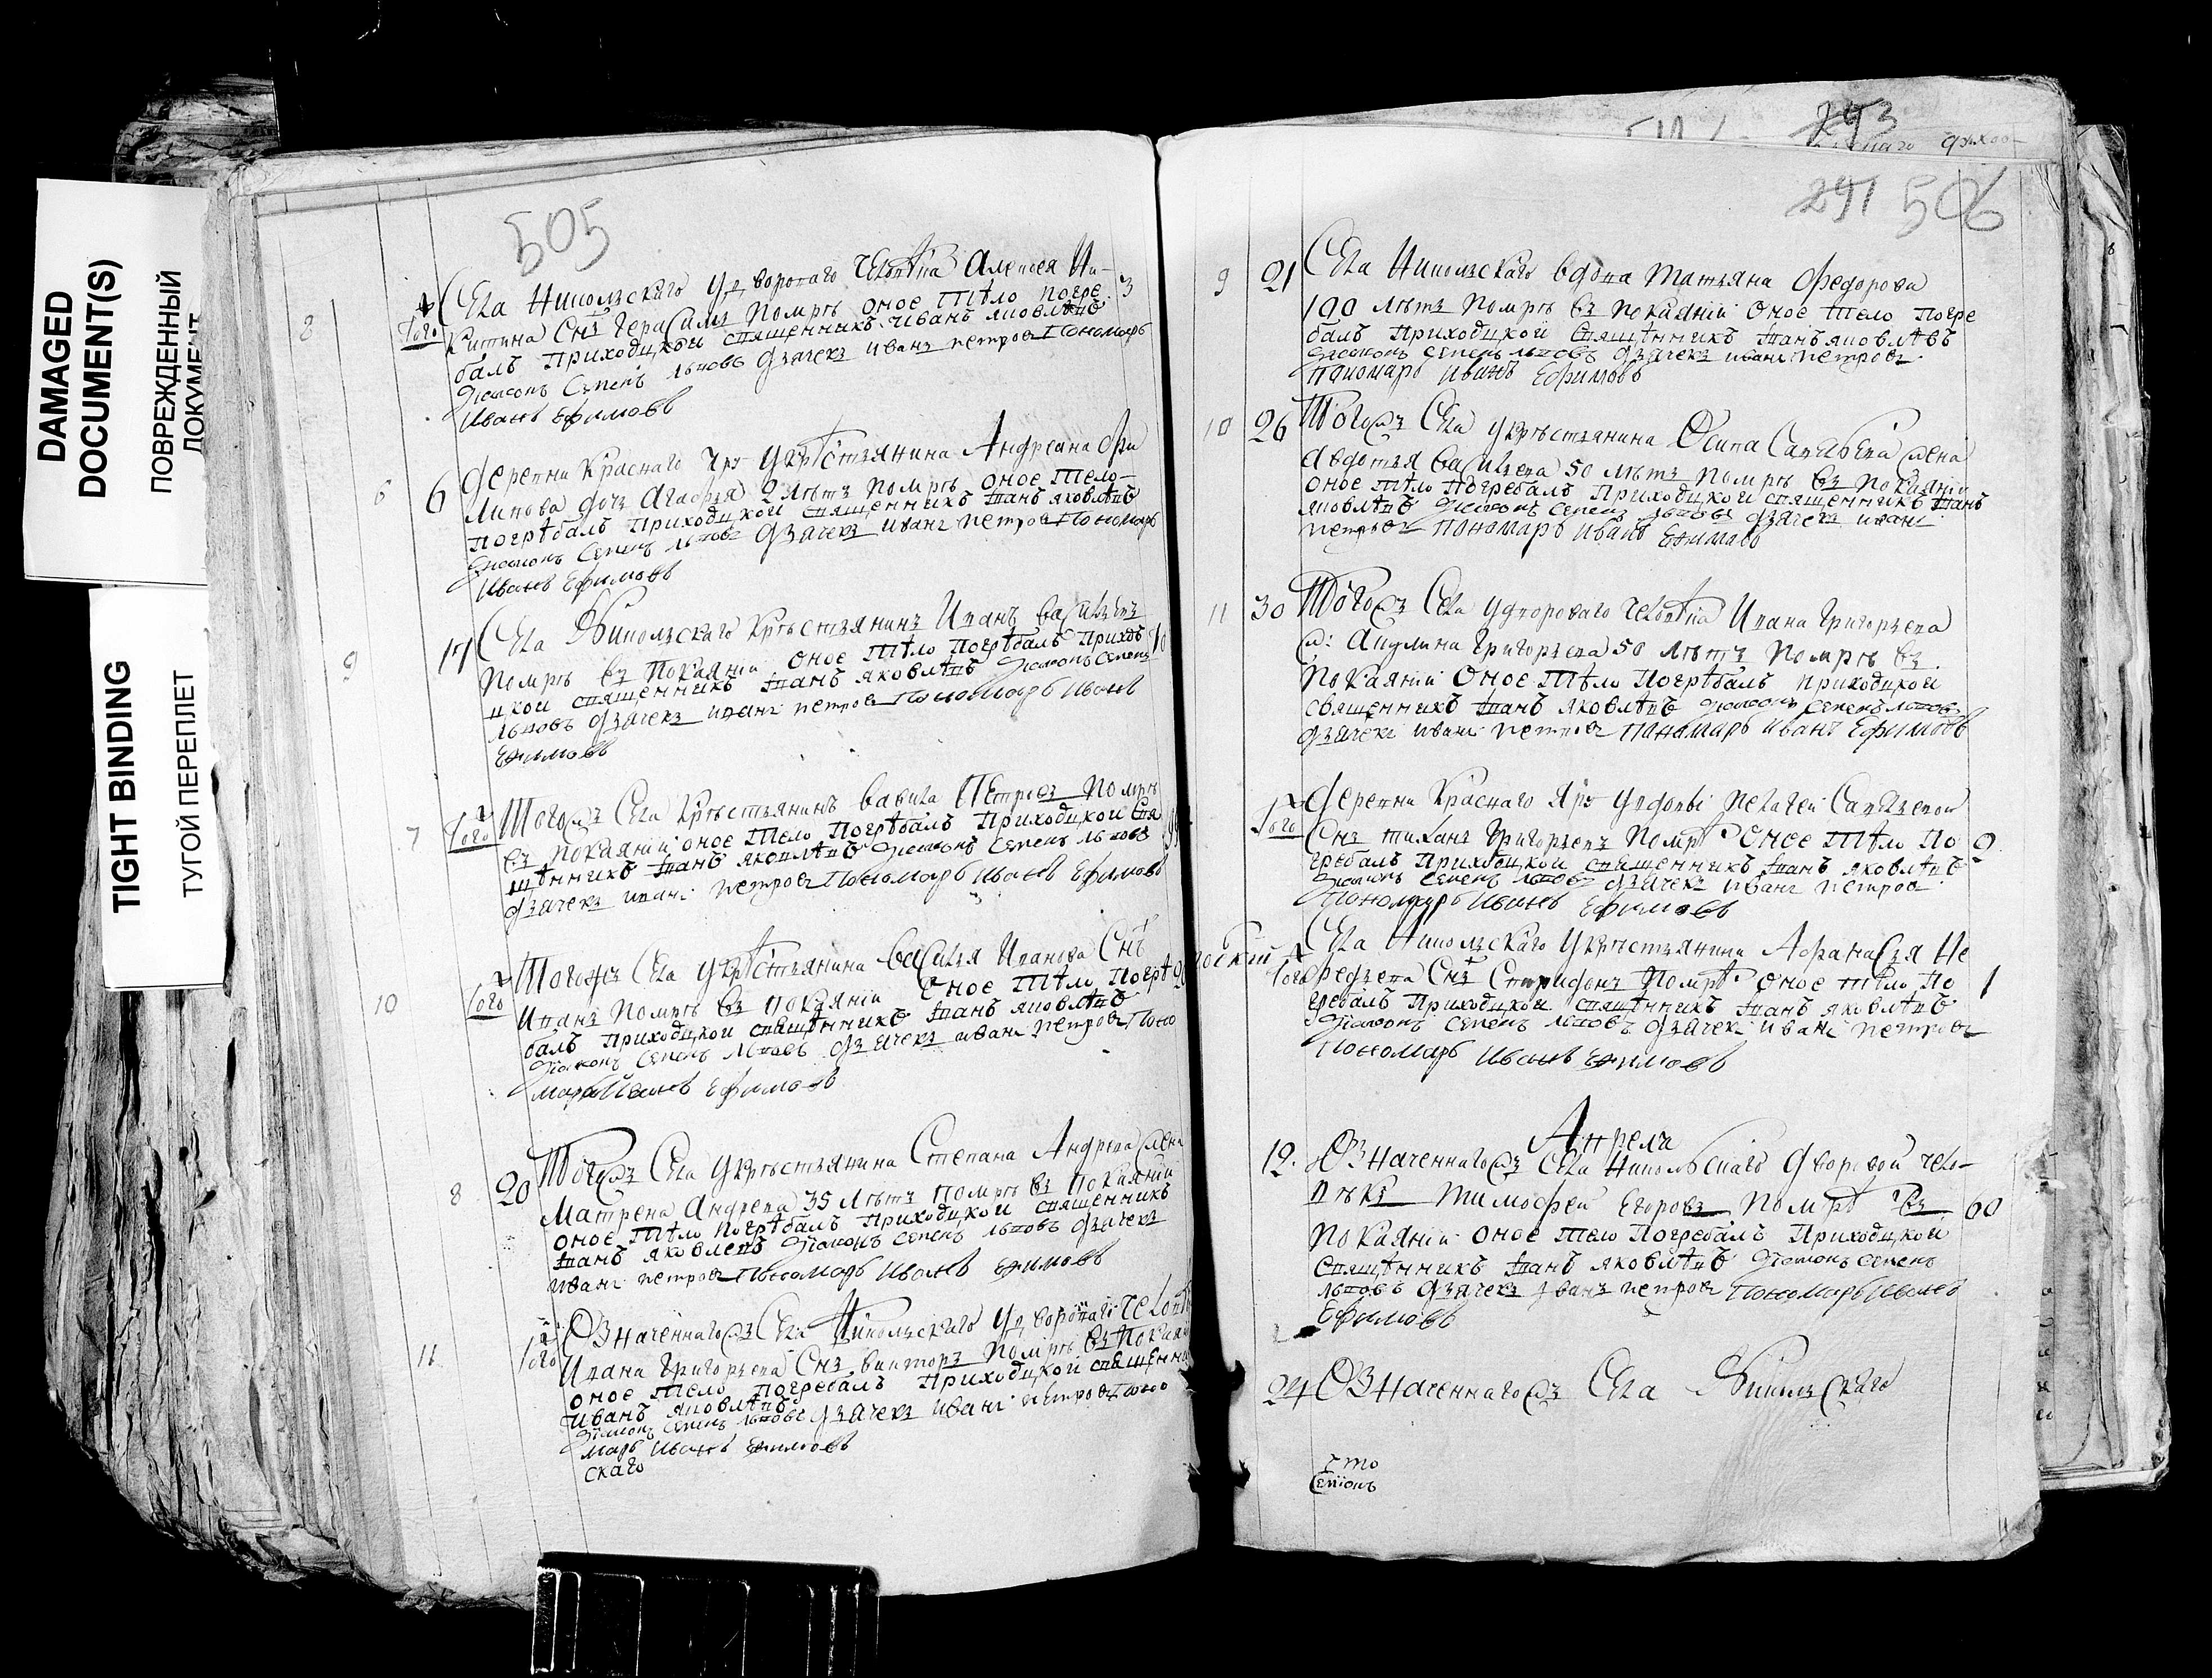 DAMAGED
DOCUMENT(S)
ПОВРЕЖДЕННЫЙ
ДОКУМЕНТ
TIGHT BINDING
ТУГОЙ ПЕРЕПЛЕТ
505
8 того Села Никольскаго у дворового человѣка Алексея Ни-
китина снъ Герасимъ помрѣ оное тѣло погре 3
балъ приходцкои священникъ Иванъ яковлѣвъ
диаконъ Семенъ львовъ дьячекъ иванъ петровъ Пономарь
Иванъ Ефимовъ
6 6 деревни Краснаго Яру укрѣстьянина Андреяна Фи
липова дочь Агафья 2 лѣтъ помрѣ оное тело
погрѣбалъ приходцкои священникъ Іванъ яковлѣвъ
диаконъ Семенъ львовъ дьячекъ иванъ петровъ Пономарь
Иванъ Ефимовъ
9 17 Села Никольскаго крѣстьянинъ Иванъ васильевъ
помрѣ въ покаяніи оное тѣло погрѣбалъ приход 70
цкои священникъ Іванъ яковлѣвъ диаконъ Семенъ
львовъ дьячекъ иванъ петровъ Пономарь Иванъ
Ефимовъ
7 того Тогожъ Села крѣстьянинъ вавила Петровъ помрѣ
въ покаяніи оное тело погрѣбалъ приходцкои свя
щѣнникъ Іванъ яковлѣвъ диаконъ Семенъ львовъ
дьячекъ иванъ петровъ Пономарь Иванъ Ефимовъ
10 того Тогожъ Села укрѣстьянина василья Иванова Снъ
Иванъ помрѣ въ покаяніи оное тѣло погрѣ
балъ приходцкои священникъ Іванъ яковлѣвъ
диаконъ Семенъ львовъ дьячекъ иванъ петровъ Поно
марь Иванъ Ефимовъ
8 20 Тогожъ Села укрѣстьянина Степана Андрева жена
Матрена Андрева 35 лѣтъ помрѣ въ покаяніи
оное тѣло погрѣбалъ приходцкои священникъ
Іванъ яковлевъ диаконъ Семенъ львовъ дьячекъ
иванъ петровъ Пономарь Иванъ Ефимовъ
11 того Означеннагожъ Села Никольскаго у дворового человѣ
Ивана Григорьева Снъ викторъ помрѣ въ покаяни
оное тело погребалъ приходцкои священни
иванъ яковлѣвъ
диаконъ Семенъ львовъ дьячекъ иванъ петровъ Поно
марь Иванъ Ефимовъ
скаго
293
291 506
9 21 Села Никольскаго вдова татьяна Федорова
100 лѣтъ помрѣ въ покаяніи оное тело погре
балъ приходцкои священникъ Іванъ яковлѣвъ
диаконъ Семенъ львовъ дьячекъ иванъ петровъ
пономарь Иванъ Ефимовъ
10 26 Тогожъ Села укрѣстьянина Осипа Савельева жена
Авдотья васильева 50 лѣтъ помрѣ въ покаяніи
оное тѣло погребалъ приходцкои священникъ Іванъ
яковлѣвъ диаконъ Семенъ львовъ дьячекъ иванъ
петровъ пономарь Иванъ Ефимовъ
11 30 Тогожъ Села у двороваго человѣка Ивана Григорьева
ж: Акулина Григорьева 50 лѣтъ помрѣ въ
покаяніи оное тѣло погрѣбалъ приходцкои
священникъ Іванъ яковлѣвъ диаконъ Семенъ львовъ
дьячекъ иванъ петровъ пономарь Иванъ Ефимовъ
того деревни Краснаго Яру увдовы пелагеи Савельевои
Снъ тиханъ Григорьевъ помрѣ оное тѣло по
гребалъ приходцкои священникъ Іванъ яковлѣвъ
диаконъ Семенъ львовъ дьячекъ иванъ петровъ
Пономарь Иванъ Ефимовъ
того Села Никольскаго укрѣстьянина Афанасья Не
федьева Снъ Спиридонъ помрѣ оное тѣло по 1
гребалъ приходцкои священникъ Іванъ яковлѣвъ
диаконъ Семенъ львовъ дьячекъ иванъ петровъ
Пономарь Иванъ Ефимовъ
Апреля
12. Означеннагожъ Села Никольскаго дворовой чело-
вѣкъ тимофеи Егоровъ помрѣ въ 60
покаяніи оное тело погребалъ приходцкой
священникъ Іванъ яковлѣвъ диаконъ Семенъ
львовъ дьячекъ Іванъ петровъ Пономарь Иванъ
Ефимовъ
24 Означеннагожъ Села Никольскаго